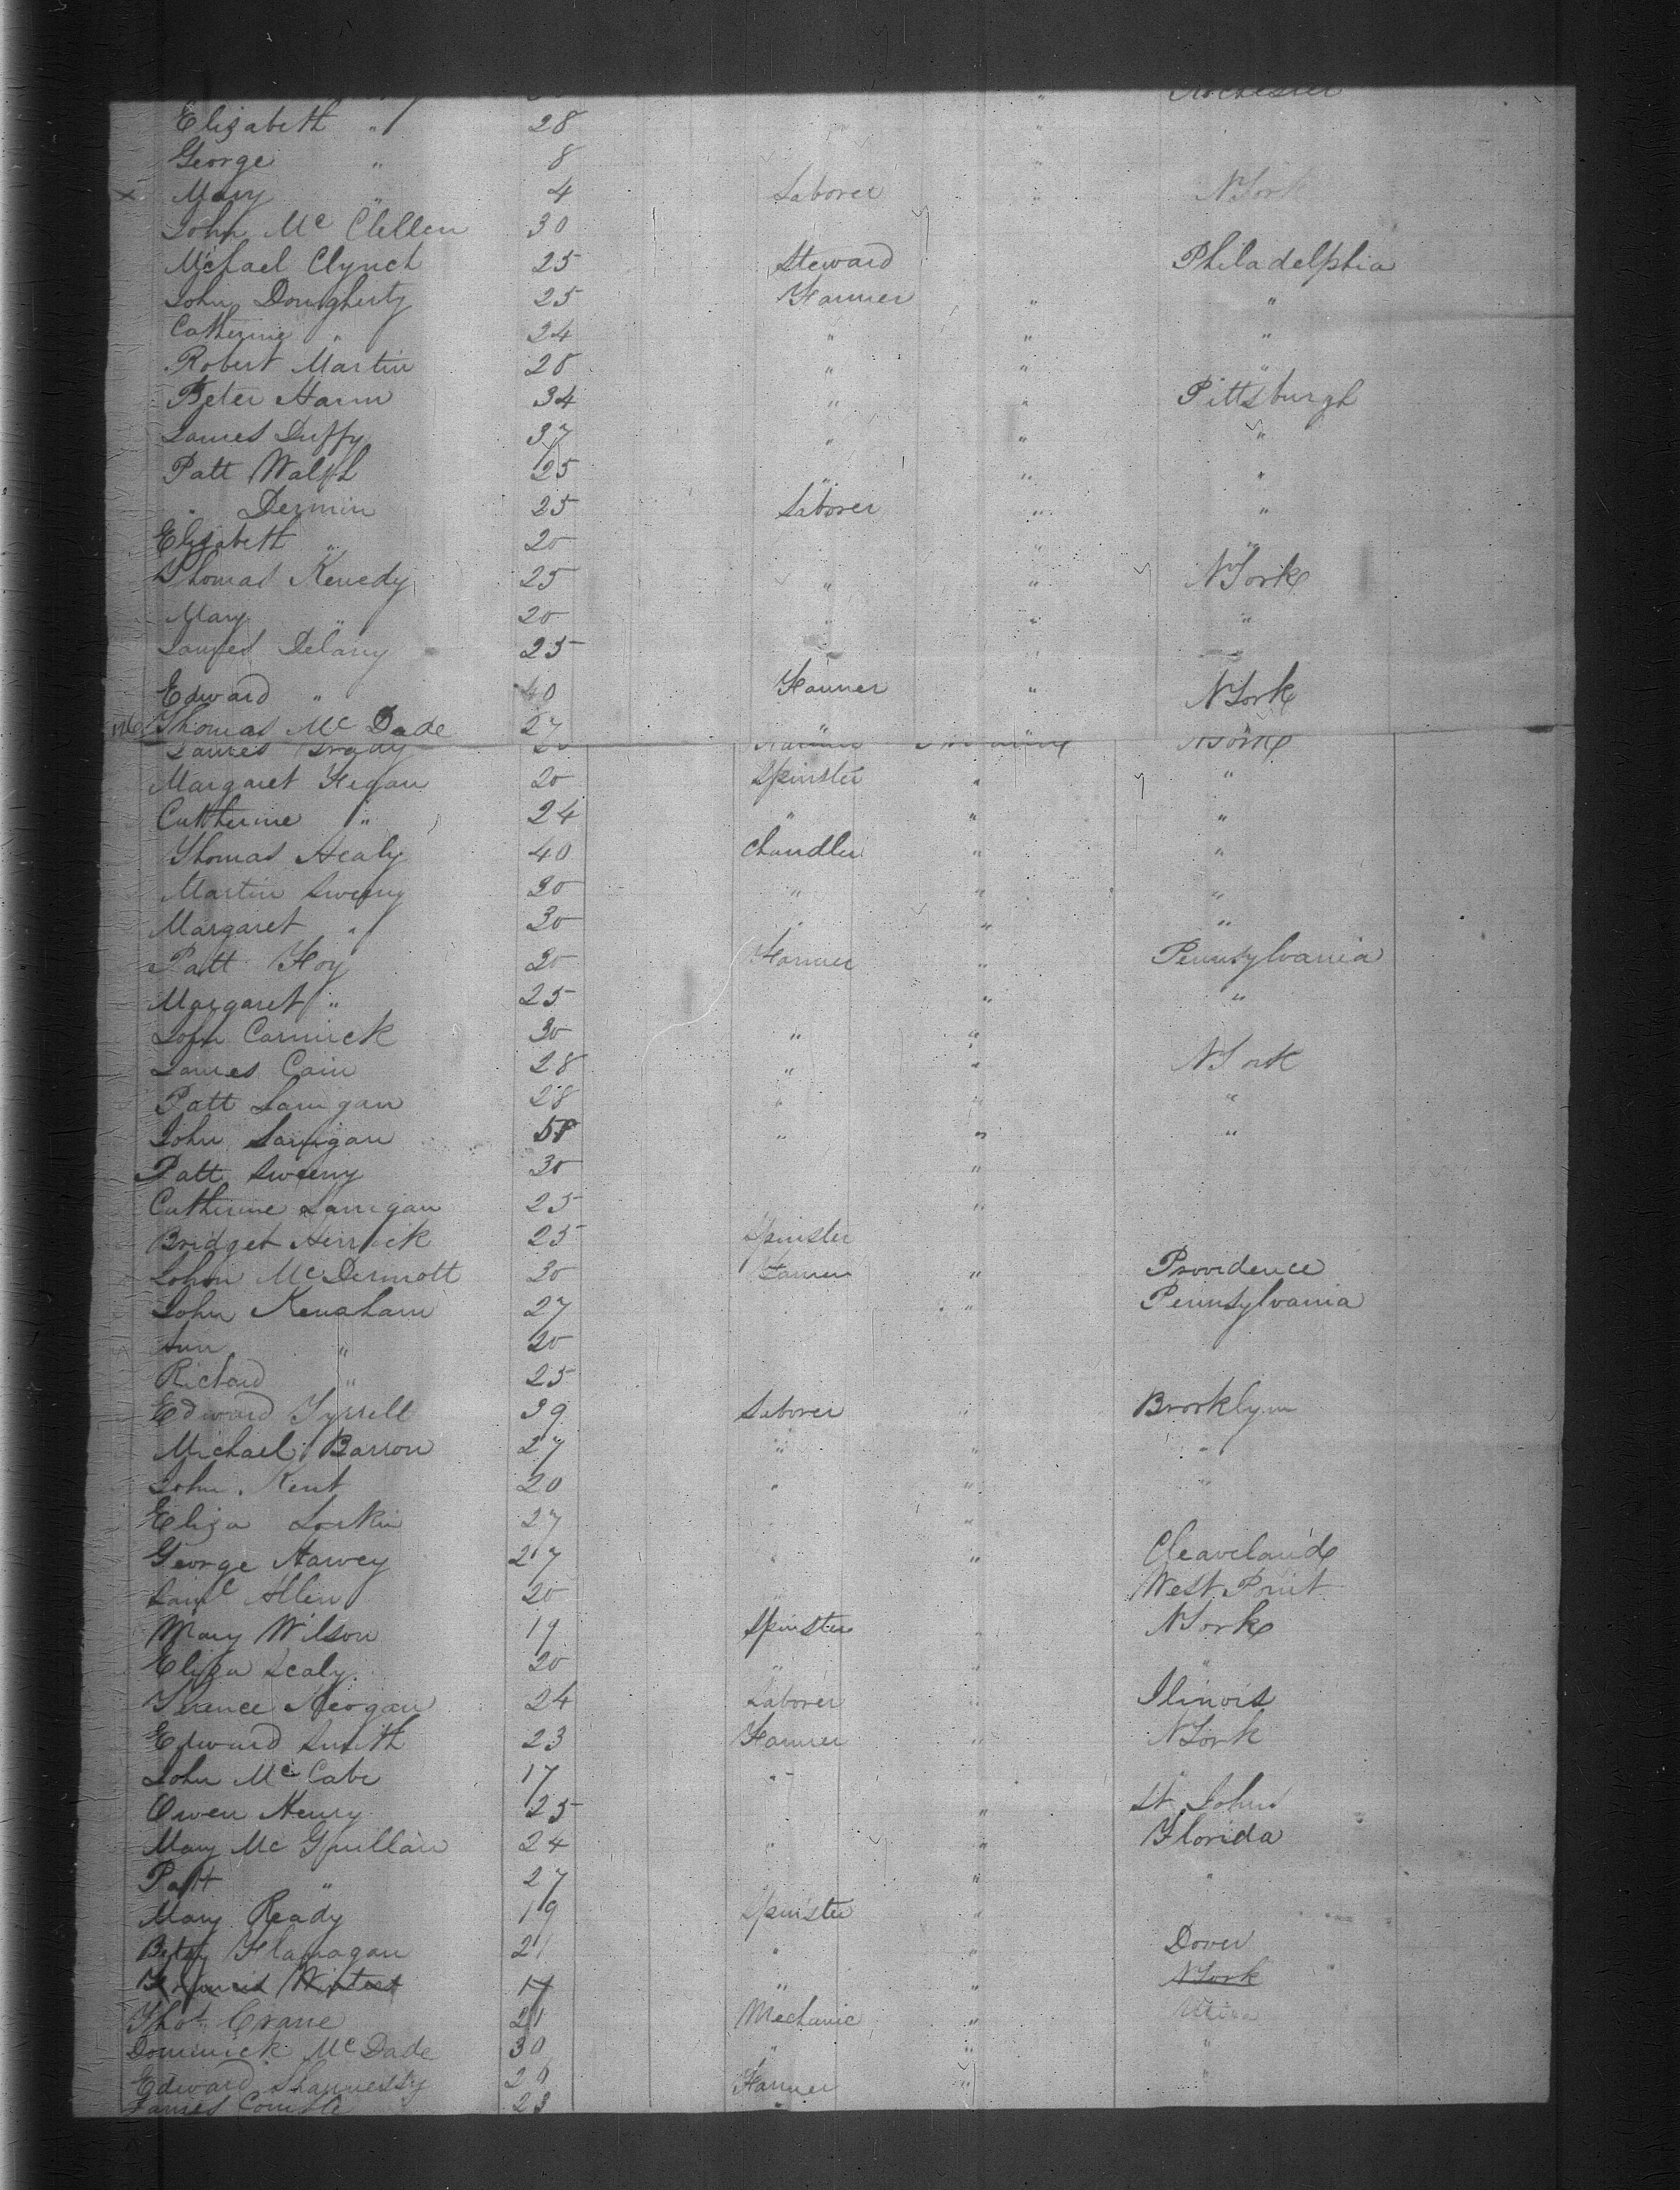 Rochester
Elizabeth " 28 "
George " 8 "
x Mary " 4 Laborer " N York
John Mc Clellen 30
Michael Clynch 25 Steward Philadelphia
John Dougherty 25 Farmer " "
Catherine " 24 " " "
Robert Martin 28 " " "
Peter Harm 34 " " Pittsburgh
James Duffy 37 " " "
Patt Walsh 25 " " "
" Dermin 25 Laborer " "
Elizabeth " 20 " "
Thomas Kenedy 25 " " N York
Mary " 20 " " "
James Delany 25 "
Edward " 40 Farmer " N York
126 Thomas Mc Dade 27
James Brady N York
Margaret Hegan 20 Spinster " "
Catherine " 24 " " "
Thomas Healy 40 Chandler " "
Martin Sweeny 30 " " "
Margaret " 30 " " "
Patt Hoy 30 Farmer " Pennsylvania
Margaret " 25 " "
John Carmick 30 " "
James Cain 28 " " N York
Patt Lanigan 28 " " "
John Lanigan " " "
Patt Sweeny 30 "
Catherine Lanigan 25 "
Bridget Herrick 25 Spinster
John McDermott 30 Farmer " Providence
John Kenaham 27 " Pennsylvania
Ann " 20
Richard " 25
Edward Tyrrell 39 Laborer " Brooklyn
Michael Barron 27 " " "
John Kent 20 " " "
Eliza Lorkin 27 "
George Harvey 27 " " Cleaveland
Saml Allen 20 West Point
Mary Wilson 19 Spinster " N York
Eliza Scaly 20 " " "
Terence Keogan 24 Laborer " Ilinois
Edward Smith 23 Farmer " N York
John Mc Cabe 17 "
Owen Henry 25 " St Johns
Mary Mc Guillan 24 " " Florida
Patt " 27 " "
Mary Ready 19 Spinster "
Betsy Flanagan 21 " " Dover
Winters 17 " " N York
Thos Crane 21 Mechanic " Utica
Dominick Mc Dade 30 " " "
Edward Shannessy 20 Farmer " "
James 23 "